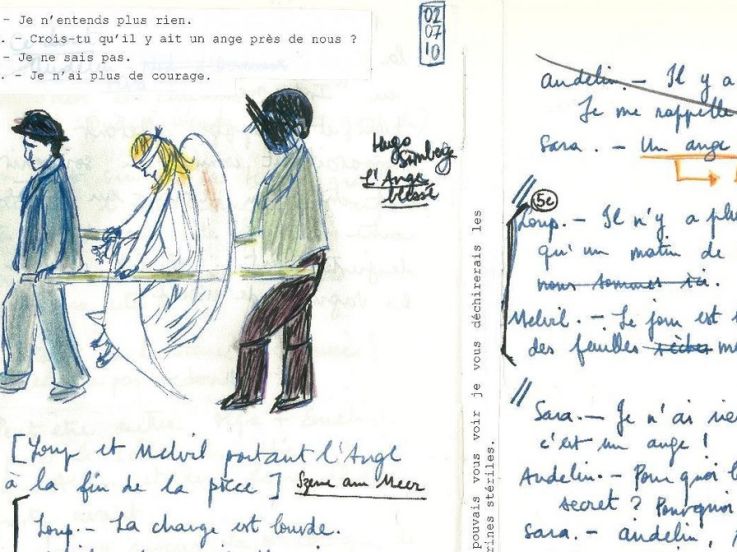 - Je n'entends plus rien.
. - Crois-tu qu'il y ait un ange près de nous ?
- Je ne sais pas.
. - Je n'ai plus de courage.
02
07
10
Hugo
Simberg
L'Ange
blessé
[Loup et Melvil portant l'Ange
à la fin de la pièce] Szene am Meer
Loup. - La charge est lourde.
pouvais vous voir je vous déchirerais les
rines stériles.
andelin. - Il y a
Je me rappelle
Sara. - Un ange
5e
Loup. - Il n'y a plu
qu'un matin de
nous sommes ici.
Melvil. - Le jour est
des feuilles sèches
Sara. - Je n'ai rie
c'est un ange !
Andelin. - Pourquoi
secret ? Pourquoi
Sara. - andelin,